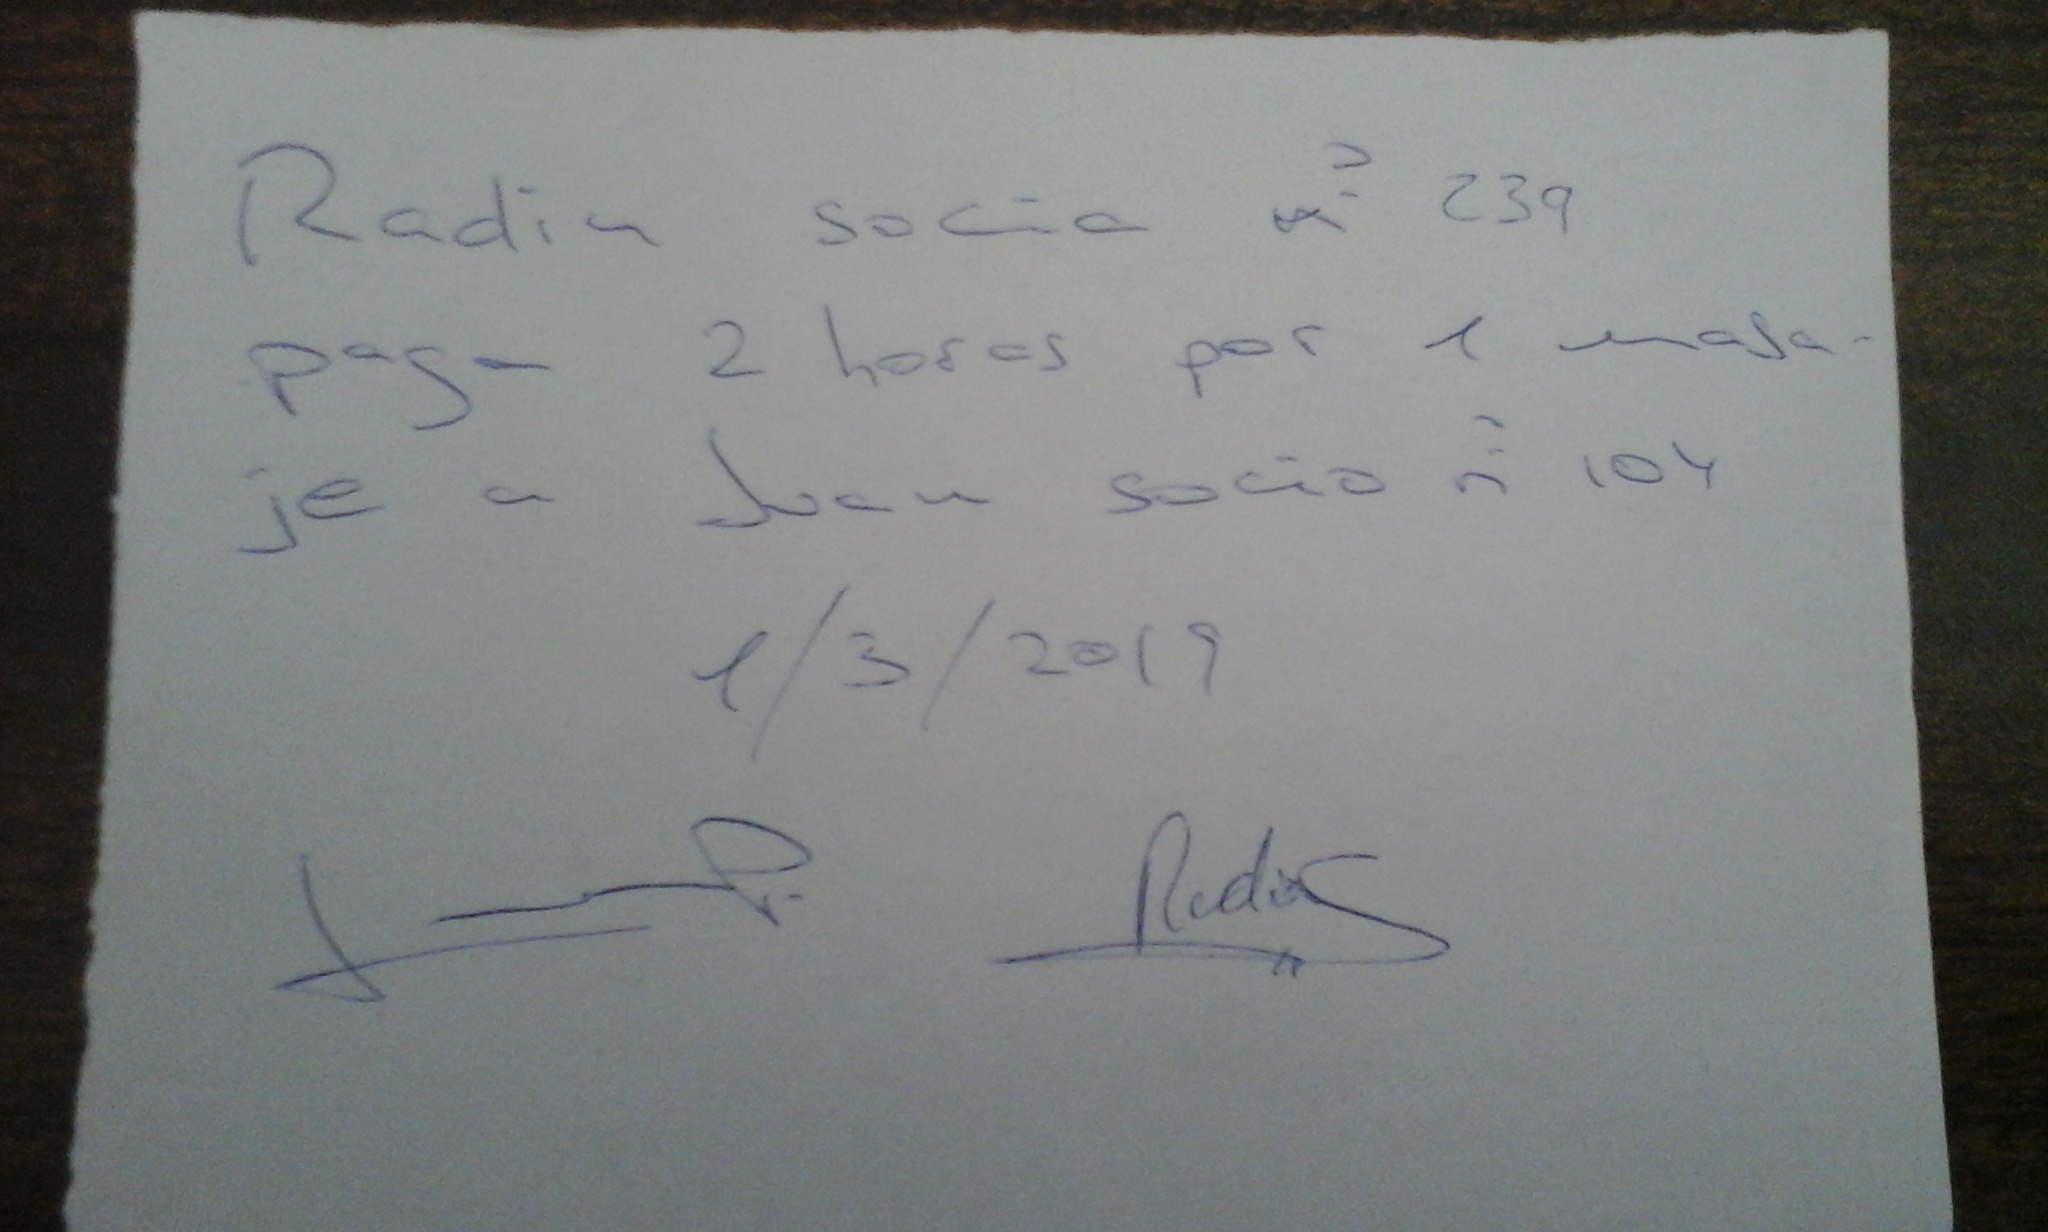 Radia socia nº 239
paga 2 horas por 1 masa-
je a Juan socio nº 104
1/3/2019
Radia